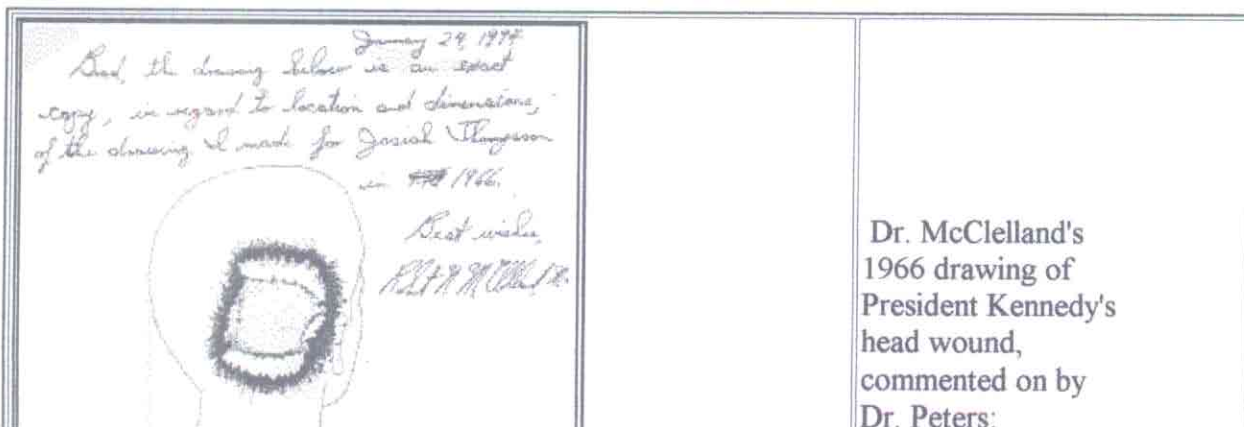 January 29, 1994
Brad, the drawing below is an exact
copy, in regard to location and dimensions,
of the drawing I made for Josiah Thompson
in 1966.
Best wishes,
Dr. McClelland's
1966 drawing of
President Kennedy's
head wound,
commented on by
Dr. Peters: